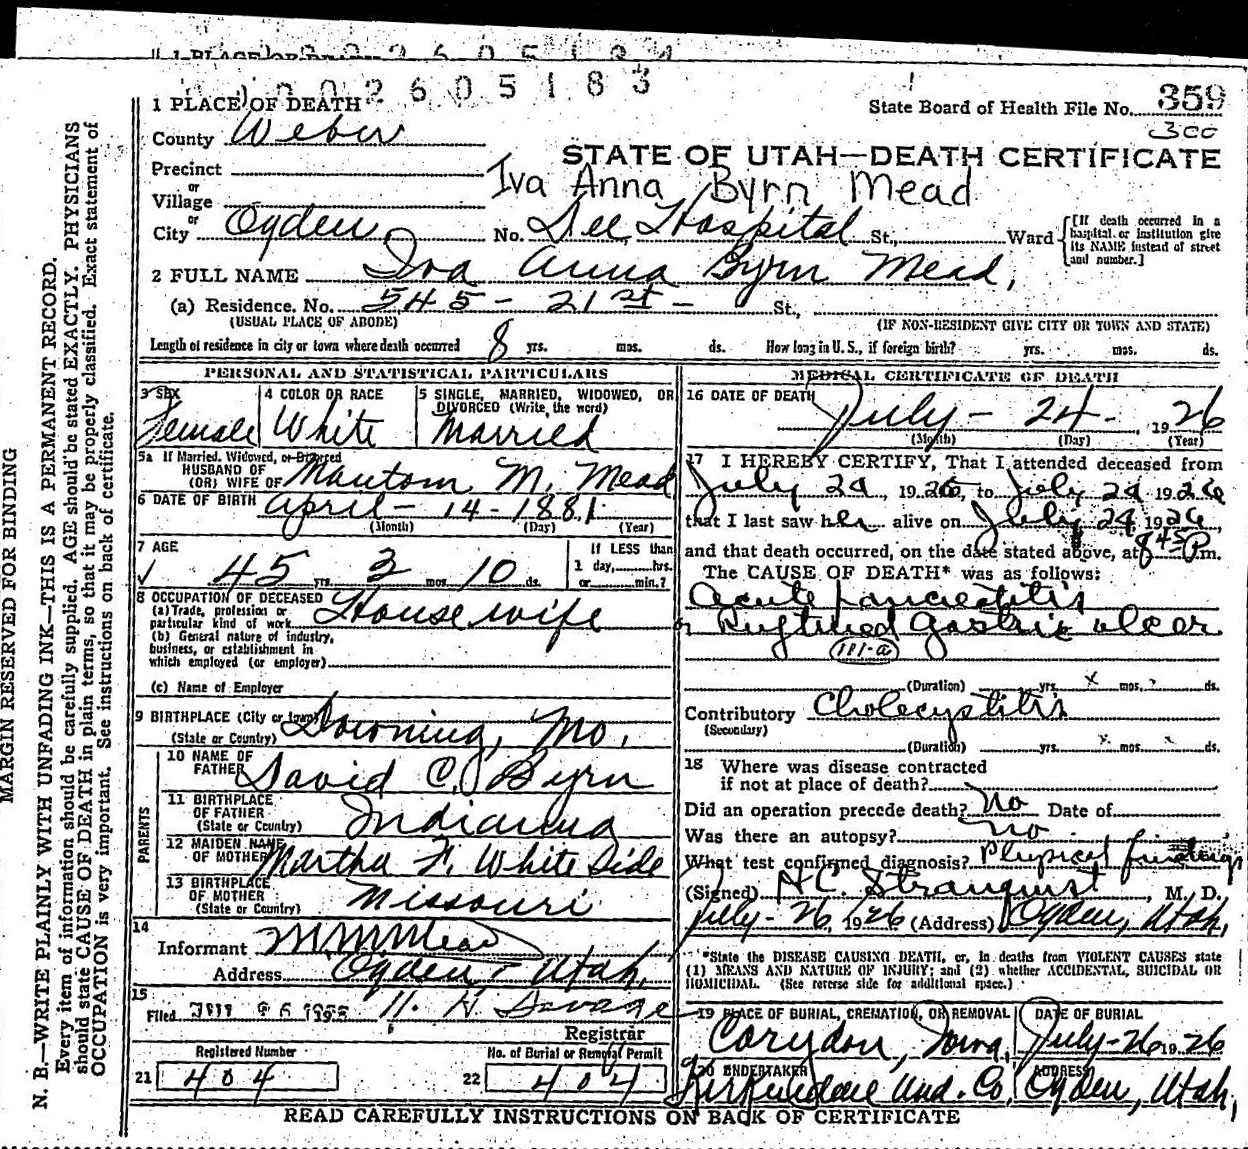 1 PLACE OF DEATH
0 0 2 6 0 5 1 8 3
1 PLACE OF DEATH
State Board of Health File No. 359
300
County Weber
STATE OF UTAH—DEATH CERTIFICATE
Precinct
Iva Anna Byrn Mead
or
Village
or
City Ogden No. Dee Hospital St., Ward
[If death occurred in a hospital or institution give its NAME instead of street and number.]
2 FULL NAME Iva Anna Byrn Mead,
(a) Residence. No. 545 - 21st - St.,
(USUAL PLACE OF ABODE) (IF NON-RESIDENT GIVE CITY OR TOWN AND STATE)
Length of residence in city or town where death occurred 8 yrs. mos. ds. How long in U. S., if foreign birth? yrs. mos. ds.
PERSONAL AND STATISTICAL PARTICULARS
3 SEX
Female
4 COLOR OR RACE
White
5 SINGLE, MARRIED, WIDOWED, OR
DIVORCED (Write the word)
Married
5a If Married, Widowed, or Divorced
HUSBAND OF
(OR) WIFE OF M. Mead
6 DATE OF BIRTH April - 14 - 1881
(Month) (Day) (Year)
7 AGE
45 yrs. 3 mos. 10 ds.
If LESS than
1 day, hrs.
or min.?
8 OCCUPATION OF DECEASED
(a) Trade, profession or
particular kind of work House wife
(b) General nature of industry,
business, or establishment in
which employed (or employer)
(c) Name of Employer
9 BIRTHPLACE (City or town)
(State or Country) Downing, Mo.
PARENTS
10 NAME OF
FATHER David C. Byrn
11 BIRTHPLACE
OF FATHER
(State or Country) Indiana
12 MAIDEN NAME
OF MOTHER Martha F. White Side
13 BIRTHPLACE
OF MOTHER
(State or Country) Missouri
14
Informant M M Mead
Address Ogden - Utah,
15
Filed H. H. Savage
Registrar
Registered Number
21 404
No. of Burial or Removal Permit
22 404
MEDICAL CERTIFICATE OF DEATH
16 DATE OF DEATH
July - 24 - 1926
(Month) (Day) (Year)
17 I HEREBY CERTIFY, That I attended deceased from
July 24, 1926, to July 24 1926
that I last saw her alive on July 24 1926,
and that death occurred, on the date stated above, at 845 P m.
The CAUSE OF DEATH* was as follows:
Acute pancreatitis
or Ruptured gastric ulcer
111-a
(Duration) yrs. x mos. ds.
Contributory Cholecystitis
(Secondary)
(Duration) yrs. x mos. x ds.
18 Where was disease contracted
if not at place of death?
Did an operation precede death? No Date of
Was there an autopsy? No
What test confirmed diagnosis? Physical findings
(Signed) H.C. Stranquist, M. D.
July - 26, 1926 (Address) Ogden, Utah,
*State the DISEASE CAUSING DEATH, or, in deaths from VIOLENT CAUSES state
(1) MEANS AND NATURE OF INJURY; and (2) whether ACCIDENTAL, SUICIDAL OR
HOMICIDAL. (See reverse side for additional space.)
19 PLACE OF BURIAL, CREMATION, OR REMOVAL
Corydon, Iowa,
DATE OF BURIAL
July - 26 1926
20 UNDERTAKER
Kirkendall Und. Co.
ADDRESS
Ogden, Utah,
READ CAREFULLY INSTRUCTIONS ON BACK OF CERTIFICATE
MARGIN RESERVED FOR BINDING
N. B.—WRITE PLAINLY WITH UNFADING INK—THIS IS A PERMANENT RECORD.
Every item of information should be carefully supplied. AGE should be stated EXACTLY. PHYSICIANS
should state CAUSE OF DEATH in plain terms, so that it may be properly classified. Exact statement of
OCCUPATION is very important. See instructions on back of certificate.